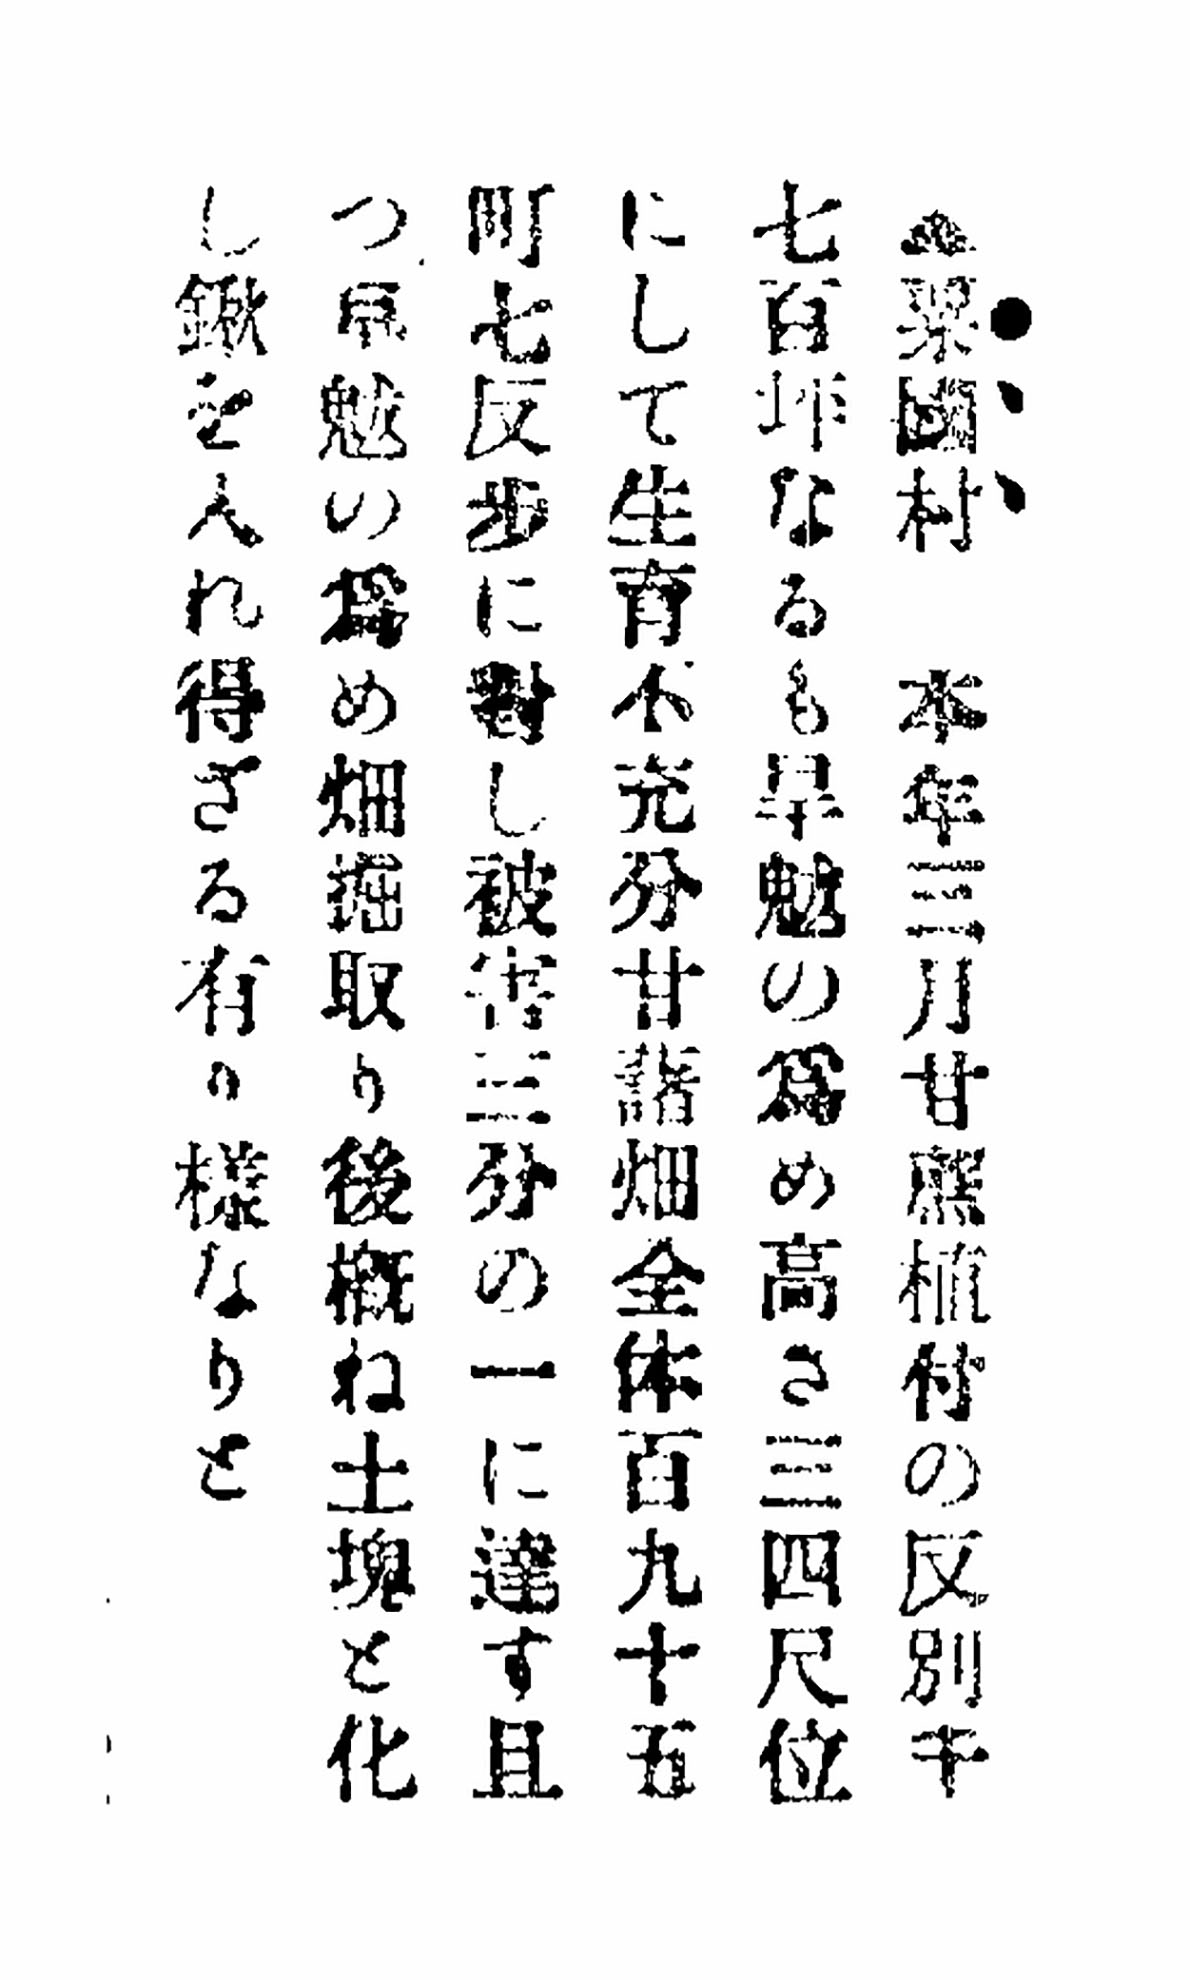 ▲粟國村　本年三月甘蔗植付の反別千
七百坪なるも旱魃の爲め高さ三四尺位
にして生育不充分甘藷畑全体百九十五
町七反歩に對し被害三分の一に達す且
つ旱魃の爲め畑掘取り後概ね土塊と化
し鍬を入れ得ざる有り様なりと